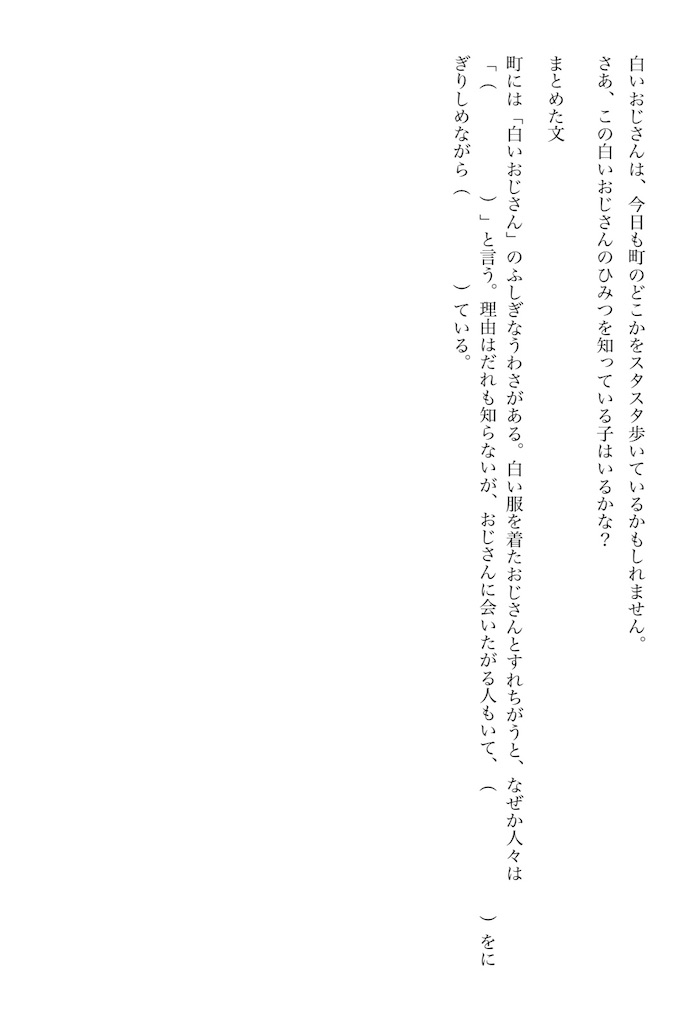 白いおじさんは、今日も町のどこかをスタスタ歩いているかもしれません。
さあ、この白いおじさんのひみつを知っている子はいるかな？
まとめた文
町には「白いおじさん」のふしぎなうわさがある。白い服を着たおじさんとすれちがうと、なぜか人々は
「（　　　　　）」と言う。理由はだれも知らないが、おじさんに会いたがる人もいて、（　　　　　　）をに
ぎりしめながら（　　　　）ている。